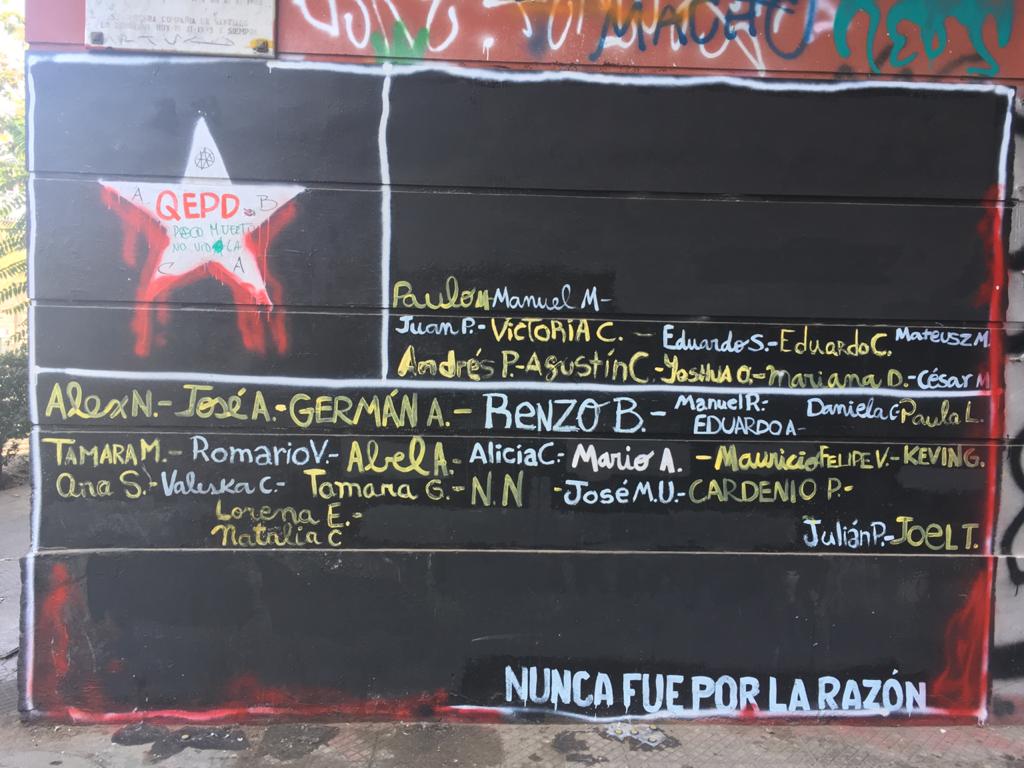 COMPAÑIA DE SANTIAGO
SIEMPRE
MACHE
QEPD.
A B
PACO MUERTO
NO VIOLA
C A
Paulo Manuel M-
Juan P.- VICTORIA C. - Eduardo S.- Eduardo C. Mateusz M.
Andrés P.- Agustín C.- Yoshua O.- Mariana D.- César M
Alex N.- José A.- GERMÁN A.- RENZO B.- Manuel R.- Daniela C- Paula L.
EDUARDO A-
TAMARA M.- Romario V.- Abel A.- Alicia C.- Mario A. - Mauricio FELIPE V.- KEVIN G.
Ana S.- Valeska C.- Tamara G.- N.N -José M.U.- CARDENIO P.-
Lorena E.-
Natalia C
Julián P.- JOEL T.
NUNCA FUE POR LA RAZÓN